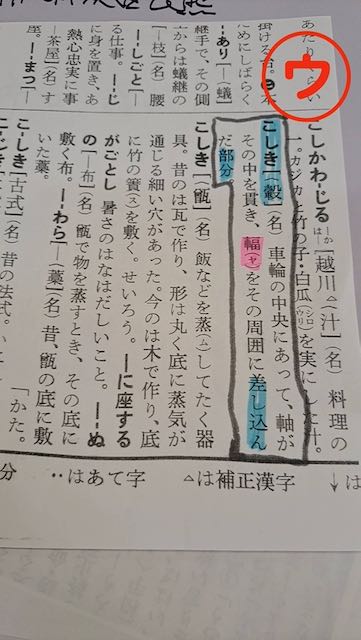 ウ
あたり
掛ける台。❷本
ためにしばらく
―あり［―蟻］
継手で、その側
からは蟻継の
―しごと［―
―枝］（名）腰
る仕事。
に身を置き、あ
熱心忠実に事
―茶屋］（名）す
屋。―まつ［―
こしかわ‐じる［越川△汁］（名）料理の
―は―か
一。カジカと竹の子・白瓜（シロウリ）を実にした汁。
こしき［（轂）］（名）車輪の中央にあって、軸が
その中を貫き、輻（ヤ）をその周囲に差し込ん
だ部分。
こしき［（甑）］（名）飯などを蒸（ム）してたく器
具。昔のは瓦で作り、形は丸く底に蒸気が
通じる細い穴があった。今のは木で作り、底
に竹の簀（ス）を敷く。せいろう。―に座する
がごとし　暑さのはなはだしいこと。―ぬ
の［―布］（名）甑で物を蒸すとき、その底に
敷く布。―わら［―（藁）］（名）昔、甑の底に敷
いた藁。
こ‐しき［古式］（名）昔の法式。
「かた。
‥はあて字
△は補正漢字
↓は